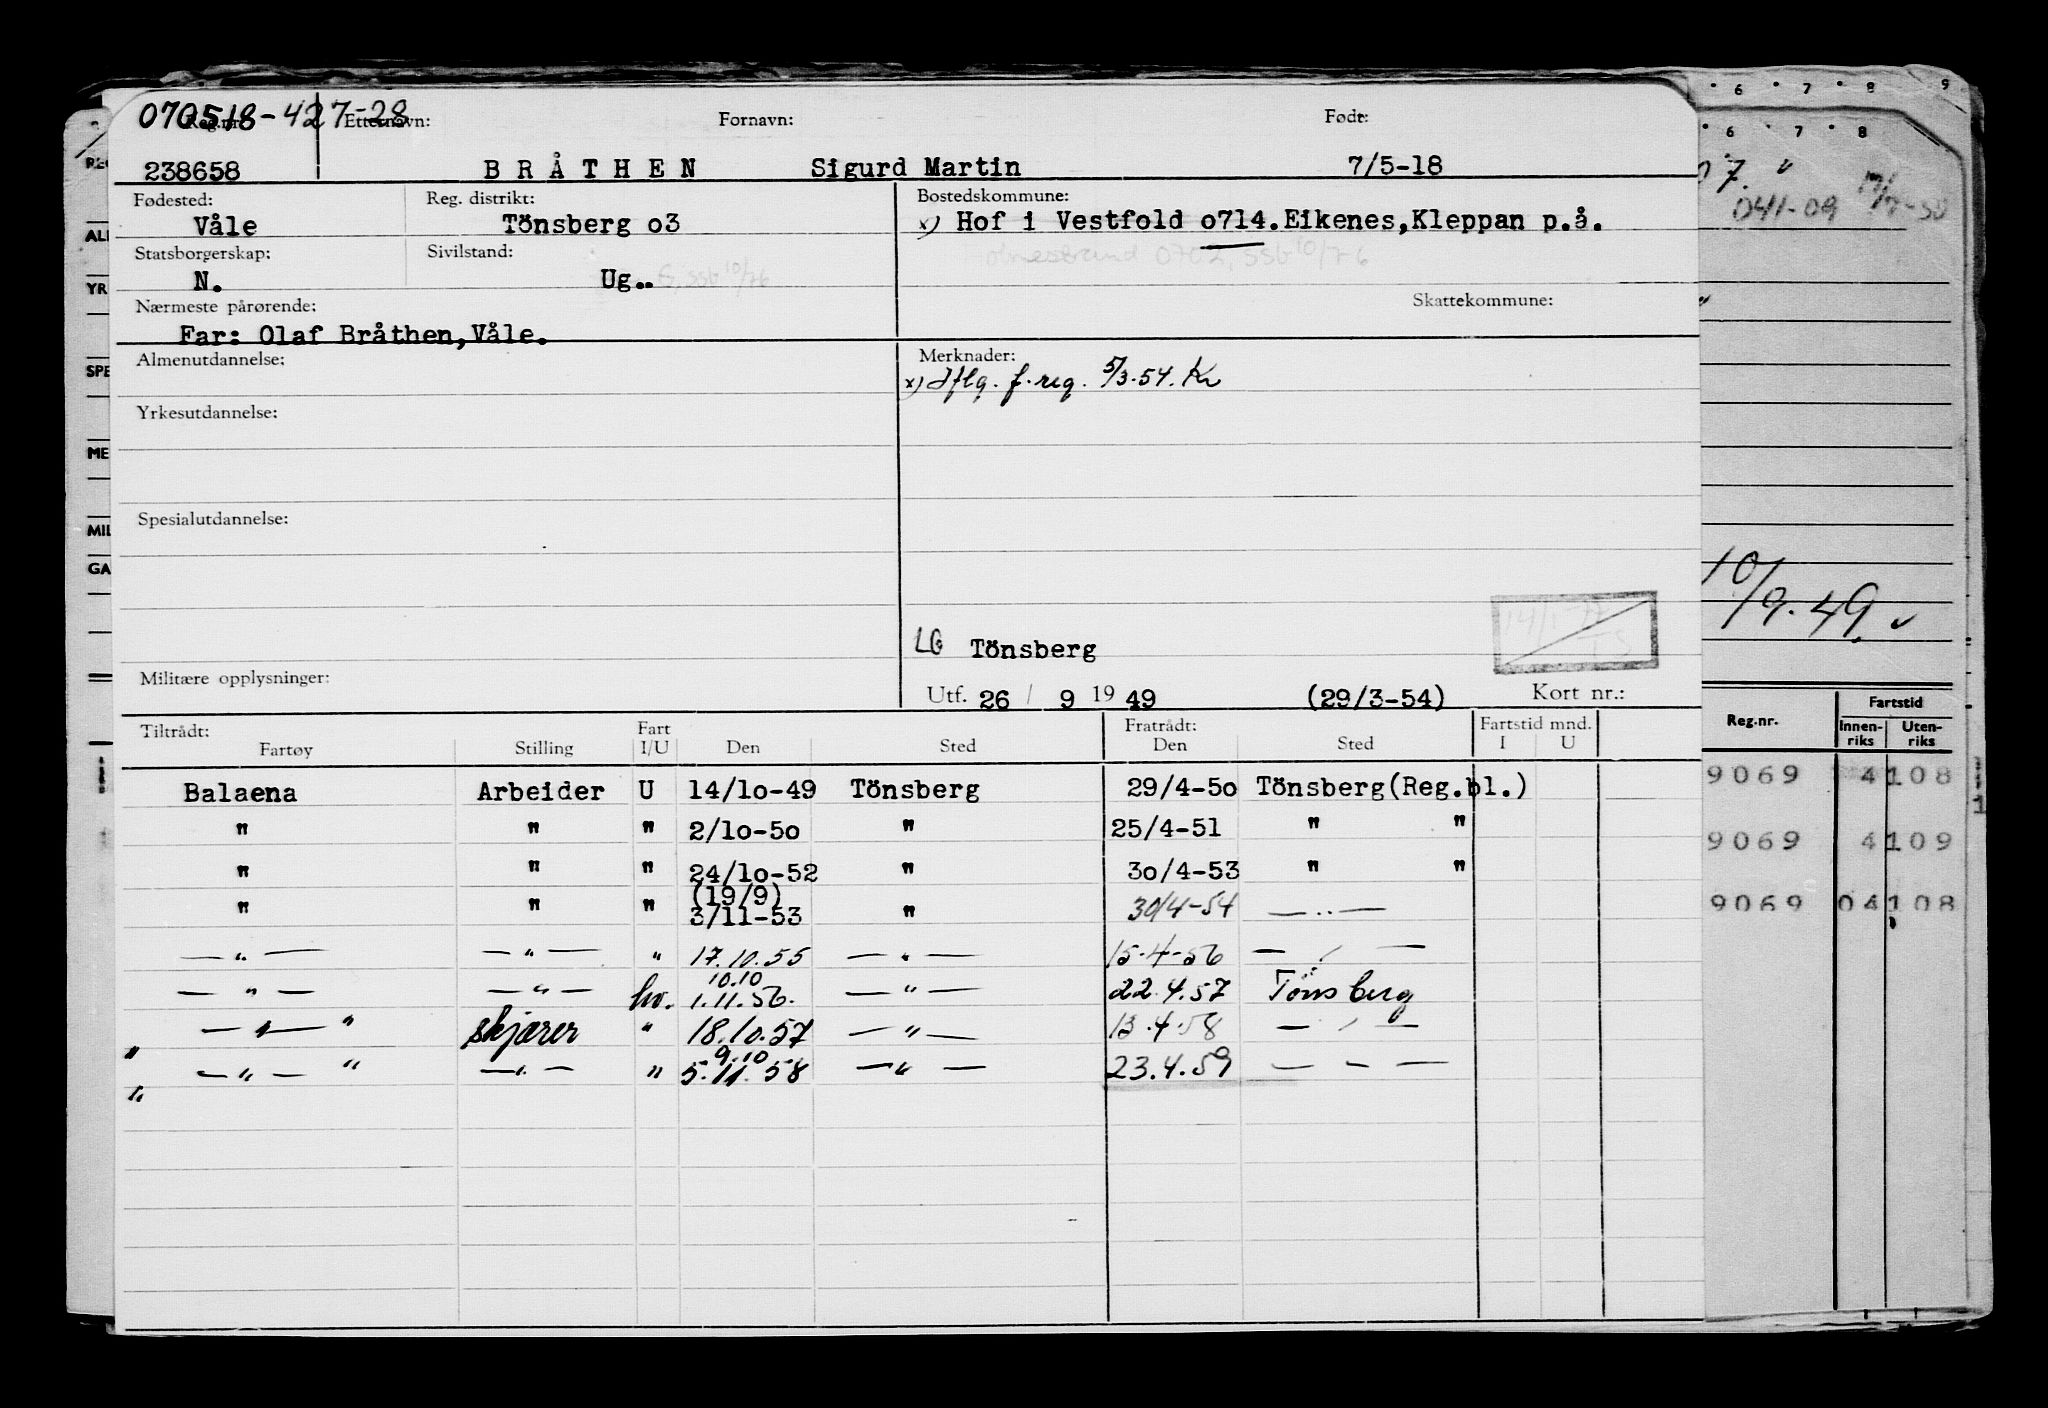 070518-427-28
Reg.nr. Etternavn: Fornavn: Født:
238658 BRÅTHEN Sigurd Martin 7/5-18
Fødested: Reg. distrikt: Bostedskommune:
Våle Tönsberg o3 x) Hof i Vestfold o714.Eikenes,Kleppan p.å.
Statsborgerskap: Sivilstand: 0702, SSb 10/76
N. Ug.. G. SSb 10/76
Nærmeste pårørende: Skattekommune:
Far: Olaf Bråthen,Våle.
Almenutdannelse: Merknader:
x) Iflg. f. reg. 5/3.54. Kr
Yrkesutdannelse:
Spesialutdannelse:
LG Tönsberg
Militære opplysninger:
Utf. 26 / 9 19 49 (29/3-54) Kort nr.:
Tiltrådt: Fart Fratrådt: Fartstid mnd.
Fartøy Stilling I/U Den Sted Den Sted I U
Balaena Arbeider U 14/1o-49 Tönsberg 29/4-5o Tönsberg(Reg.bl.)
" " " 2/1o-5o " 25/4-51 " "
" " " 24/1o-52 " 3o/4-53 " "
(19/9)
" " " 3/11-53 " 30/4-54 — .. —
— " — — " — " 17.10.55 — " — 15.4-56 — , —
10.10
— " — — " — hv. 1.11.56. — " — 22.4.57 Tönsberg
" — " — " skjærer " 18.10.57 — " — 13.4.58 — , —
9.10
" — " — " — " — " 5.11.58 — " — 23.4.59 — – —
6 7 8 9
6 7 8
07. "
041-09
10/9.49.
Reg.nr. Fartstid
Innenriks Utenriks
9069 4 108
9069 4 109
9069 04 108
REG
ALM
YR
SPE
ME
MIL
GA